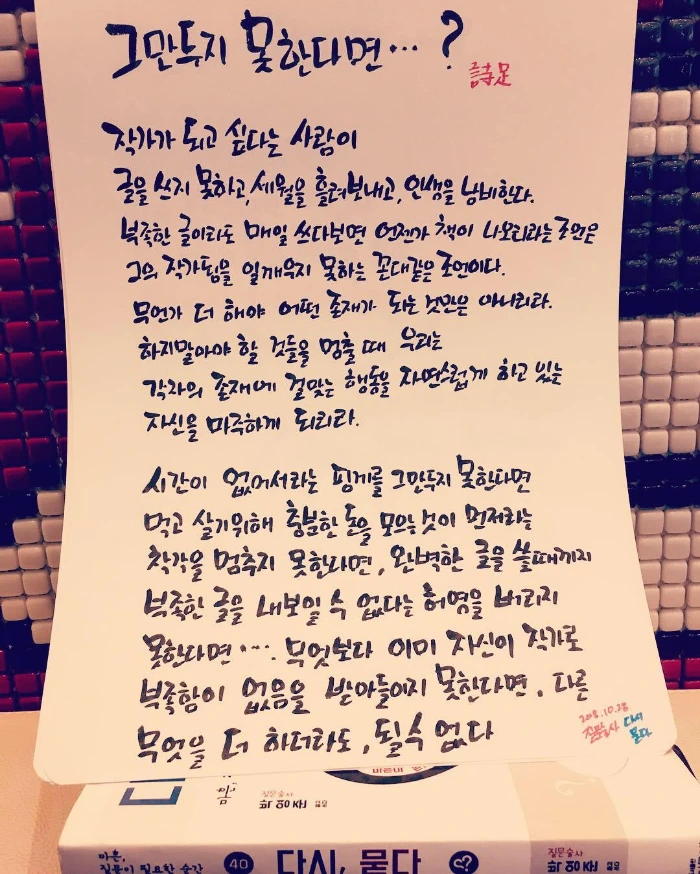 그만두지 못한다면...?
詩足
작가가 되고 싶다는 사람이
글을 쓰지 못하고, 세월을 흘려보내고, 인생을 낭비한다.
부족한 글이라도 매일 쓰다보면 언젠가 책이 나오리라는 조언은
그의 작가됨을 일깨우지 못하는 꼰대같은 조언이다.
무언가 더 해야 어떤 존재가 되는 것만은 아니리라.
하지말아야 할 것들을 멈출 때 우리는
각자의 존재에 걸맞는 행동을 자연스럽게 하고 있는
자신을 마주하게 되리라.
시간이 없어서라는 핑계를 그만두지 못한다면
먹고 살기위해 충분한 돈을 모으는 것이 먼저라는
착각을 멈추지 못한다면, 완벽한 글을 쓸때까지
부족한 글을 내보일 수 없다는 허영을 버리지
못한다면.... 무엇보다 이미 자신이 작가로
부족함이 없음을 받아들이지 못한다면, 다른
무엇을 더 하더라도, 될 수 없다
2018.10.28
질문술사 다시
묻다
질문술사
마흔,
질문이 필요한 순간
40
다시, 묻다
질문술사